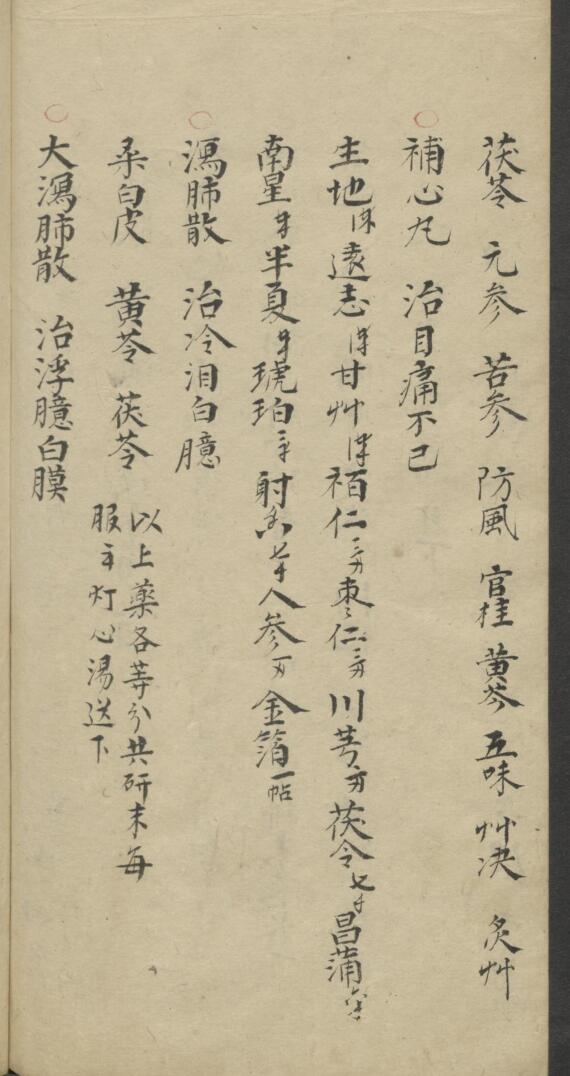 茯苓 元参 苦参 防風 官桂 黄芩 五味 艸决 炙艸
補心丸 治目痛不已
生地 遠志 甘艸 栢仁 棗仁 川芎 茯令 昌蒲
南星 半夏 琥珀 射香 人參 金箔一帖
瀉肺散 治冷泪白臆
桒白皮 黄苓 茯苓 以上藥各等分共研末每
服 灯心湯送下
大瀉肺散 治浮臆白膜